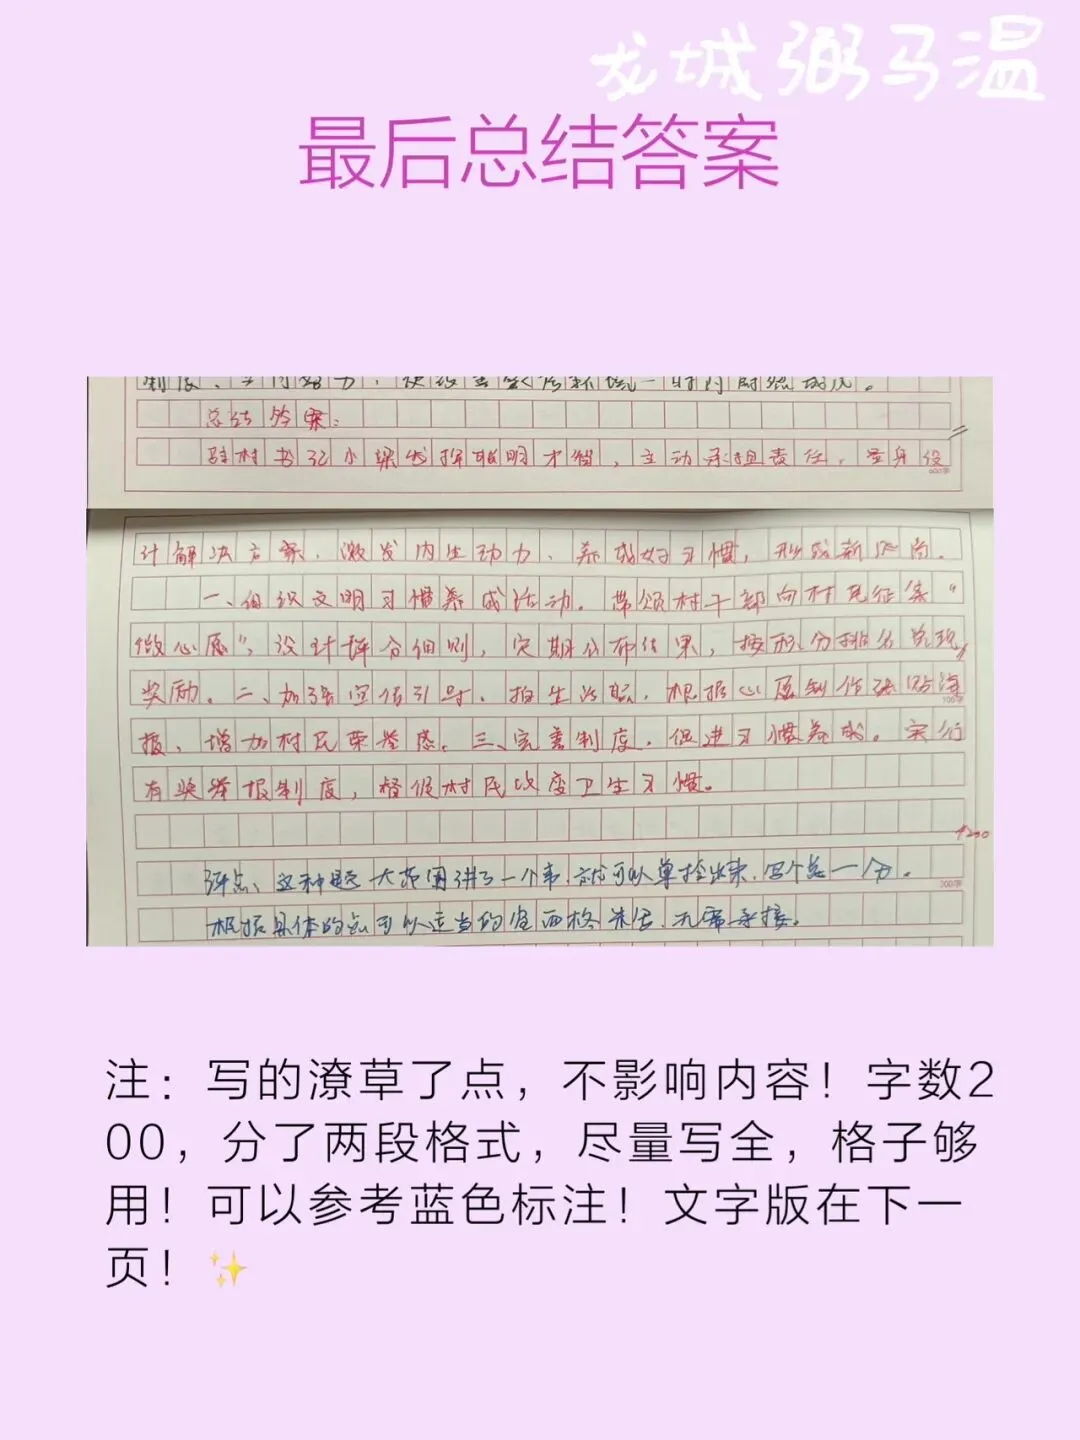 龙城弼马温
最后总结答案
总结答案：
驻村书记小梁发挥聪明才智，主动承担责任，量身设
计解决方案，激发内生动力、养成好习惯，形成新风尚。
一、组织文明习惯养成活动。带领村干部向村民征集“
微心愿”，设计评分细则，定期公布结果，按积分排名兑现
奖励。二、加强宣传引导。拍生活照，根据心愿制作张贴海
报，增加村民荣誉感。三、完善制度，促进习惯养成。实行
有奖举报制度，督促村民改变卫生习惯。
200
评点、这种题大范围讲了一个事，就可以单拎出来，写个总一分。
根据具体的点可以适当的
注：写的潦草了点，不影响内容！字数2
00，分了两段格式，尽量写全，格子够
用！可以参考蓝色标注！文字版在下一
页！✨